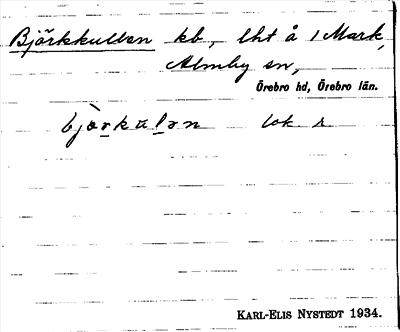 Björkkullen kb, lht å 1 Mark,
Almby sn,
Örebro hd, Örebro län.
bjærkulən lok. s.
KARL-ELIS NYSTEDT 1934.